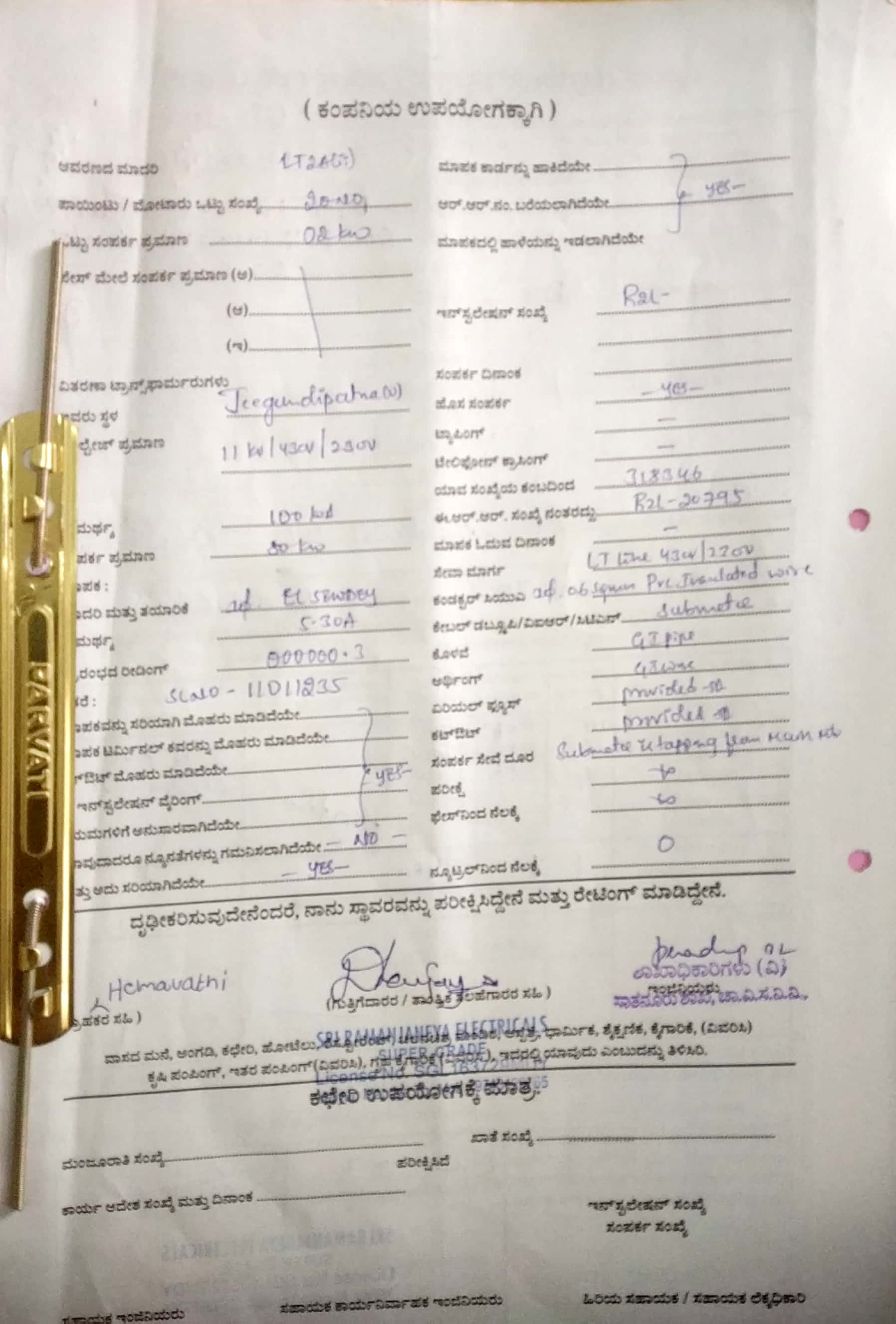 ( ಕಂಪನಿಯ ಉಪಯೋಗಕ್ಕಾಗಿ )
ಆವರಣದ ಮಾದರಿ LT2A(ii)
ಪಾಯಿಂಟು / ಮೋಟಾರು ಒಟ್ಟು ಸಂಖ್ಯೆ
ಒಟ್ಟು ಸಂಪರ್ಕ ಪ್ರಮಾಣ 02 kw
ಮೇಲೆ ಸಂಪರ್ಕ ಪ್ರಮಾಣ (ಅ)
(ಆ)
(ಇ)
ವಿತರಣಾ ಟ್ರಾನ್ಸ್‌ಫಾರ್ಮರುಗಳು
ಸ್ಥಳ Jeegundipatna (v)
ಪ್ರಮಾಣ 11 kv/430v/230v
ಮರ್ಥ್ಯ
ಪರ್ಕ ಪ್ರಮಾಣ 80 kw
ಾಪಕ :
ಾದರಿ ಮತ್ತು ತಯಾರಿಕೆ
ಮರ್ಥ್ಯ 5-30A
ರಂಭದ ರೀಡಿಂಗ್ 000000.3
Slno - 11011235
ಾಪಕವನ್ನು ಸರಿಯಾಗಿ ಮೊಹರು ಮಾಡಿದೆಯೇ
ಾಪಕ ಟರ್ಮಿನಲ್ ಕವರನ್ನು ಮೊಹರು ಮಾಡಿದೆಯೇ
ಕಟ್‌ಔಟ್ ಮೊಹರು ಮಾಡಿದೆಯೇ YES-
ಇನ್‌ಸ್ಟಲೇಷನ್ ವೈರಿಂಗ್
ಯಮಗಳಿಗೆ ಅನುಸಾರವಾಗಿದೆಯೇ
ಾವುದಾದರೂ ನ್ಯೂನತೆಗಳನ್ನು ಗಮನಿಸಲಾಗಿದೆಯೇ - NO -
ತ್ತು ಅದು ಸರಿಯಾಗಿದೆಯೇ - YES-
ಮಾಪಕ ಕಾರ್ಡನ್ನು ಹಾಕಿದೆಯೇ
ಆರ್.ಆರ್.ನಂ. ಬರೆಯಲಾಗಿದೆಯೇ YES-
ಮಾಪಕದಲ್ಲಿ ಹಾಳೆಯನ್ನು ಇಡಲಾಗಿದೆಯೇ
ಇನ್‌ಸ್ಟಲೇಷನ್ ಸಂಖ್ಯೆ R2L-
ಸಂಪರ್ಕ ದಿನಾಂಕ
ಹೊಸ ಸಂಪರ್ಕ -YES-
ಟ್ಯಾಪಿಂಗ್ -
ಟೆಲಿಫೋನ್ ಕ್ರಾಸಿಂಗ್ -
ಯಾವ ಸಂಖ್ಯೆಯ ಕಂಬದಿಂದ 318346
ಈ.ಆರ್.ಆರ್. ಸಂಖ್ಯೆ ನಂತರದ್ದು R2L-20795
ಮಾಪಕ ಓದುವ ದಿನಾಂಕ -
ಸೇವಾ ಮಾರ್ಗ LT Line 430v/230v
ಕಂಡಕ್ಟರ್ ಸಿಯುವಿ Insulated wire
ಕೇಬಲ್ ಡಬ್ಲ್ಯೂಪಿ/ವಿಐಆರ್/ಸಿಟಿಎಸ್ Submeter
ಕೊಳವೆ GI pipe
ಅರ್ಥಿಂಗ್ GI wire
ಏರಿಯಲ್ ಫ್ಯೂಸ್ provided
ಕಟ್‌ಔಟ್ provided
ಸಂಪರ್ಕ ಸೇವೆ ದೂರ Submeter tapping from main
ಪರೀಕ್ಷೆ
ಫೇಸ್‌ನಿಂದ ನೆಲಕ್ಕೆ
ನ್ಯೂಟ್ರಲ್‌ನಿಂದ ನೆಲಕ್ಕೆ 0
ದೃಢೀಕರಿಸುವುದೇನೆಂದರೆ, ನಾನು ಸ್ಥಾವರವನ್ನು ಪರೀಕ್ಷಿಸಿದ್ದೇನೆ ಮತ್ತು ರೇಟಿಂಗ್ ಮಾಡಿದ್ದೇನೆ.
Hemavathi
ಗ್ರಾಹಕರ ಸಹಿ )
(ಗುತ್ತಿಗೆದಾರರ / ತಾಂತ್ರಿಕ ಸಲಹೆಗಾರರ ಸಹಿ )
ಶಾಖಾಧಿಕಾರಿಗಳು (ವಿ)
ಇಂಜಿನಿಯರು
ಸಾತನೂರು ಶಾಖೆ, ಚಾ.ವಿ.ಸ.ನಿ.ನಿ.,
SRI RAMANJANEYA ELECTRICALS
SUPER GRADE
ವಾಸದ ಮನೆ, ಅಂಗಡಿ, ಕಛೇರಿ, ಹೋಟೆಲು, ಆಸ್ಪತ್ರೆ, ಧಾರ್ಮಿಕ, ಶೈಕ್ಷಣಿಕ, ಕೈಗಾರಿಕೆ, (ವಿವರಿಸಿ)
ಕೃಷಿ ಪಂಪಿಂಗ್, ಇತರ ಪಂಪಿಂಗ್ (ವಿವರಿಸಿ), ಗೃಹ ಕೈಗಾರಿಕೆ (ವಿವರಿಸಿ), ಇದರಲ್ಲಿ ಯಾವುದು ಎಂಬುದನ್ನು ತಿಳಿಸಿರಿ.
License No.
ಕಛೇರಿ ಉಪಯೋಗಕ್ಕೆ ಮಾತ್ರ.
ಮಂಜೂರಾತಿ ಸಂಖ್ಯೆ ಖಾತೆ ಸಂಖ್ಯೆ
ಪರೀಕ್ಷಿಸಿದೆ
ಕಾರ್ಯ ಆದೇಶ ಸಂಖ್ಯೆ ಮತ್ತು ದಿನಾಂಕ
ಇನ್‌ಸ್ಟಲೇಷನ್ ಸಂಖ್ಯೆ
ಸಂಪರ್ಕ ಸಂಖ್ಯೆ
ಸಹಾಯಕ ಇಂಜಿನಿಯರು ಸಹಾಯಕ ಕಾರ್ಯನಿರ್ವಾಹಕ ಇಂಜಿನಿಯರು ಹಿರಿಯ ಸಹಾಯಕ / ಸಹಾಯಕ ಲೆಕ್ಕಾಧಿಕಾರಿ
PARVATI